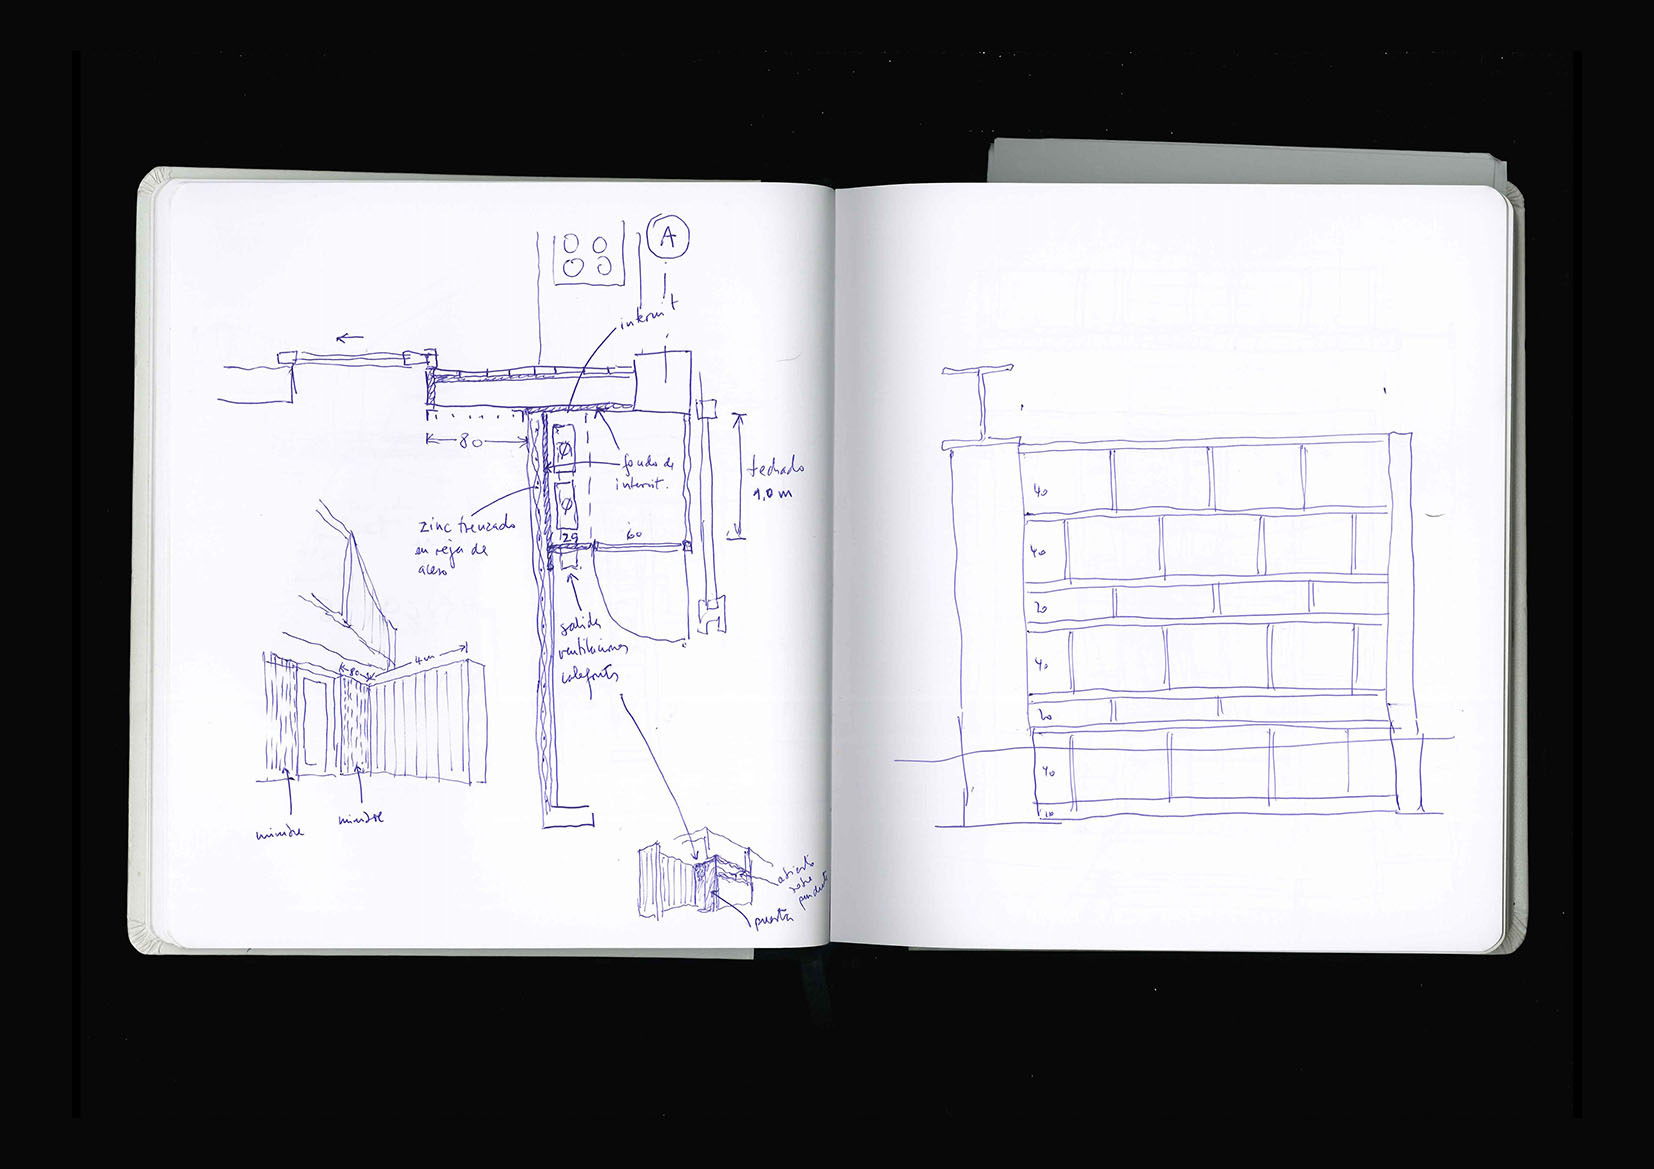 A
internit
80
fondo de
internit.
techado
1,0 m
zinc trenzado
en reja de
acero
29
60
salidas
ventilaciones
calefonts
4m
80
mimbre
mimbre
abierto
sobre
puerta
40
40
20
40
20
40
10